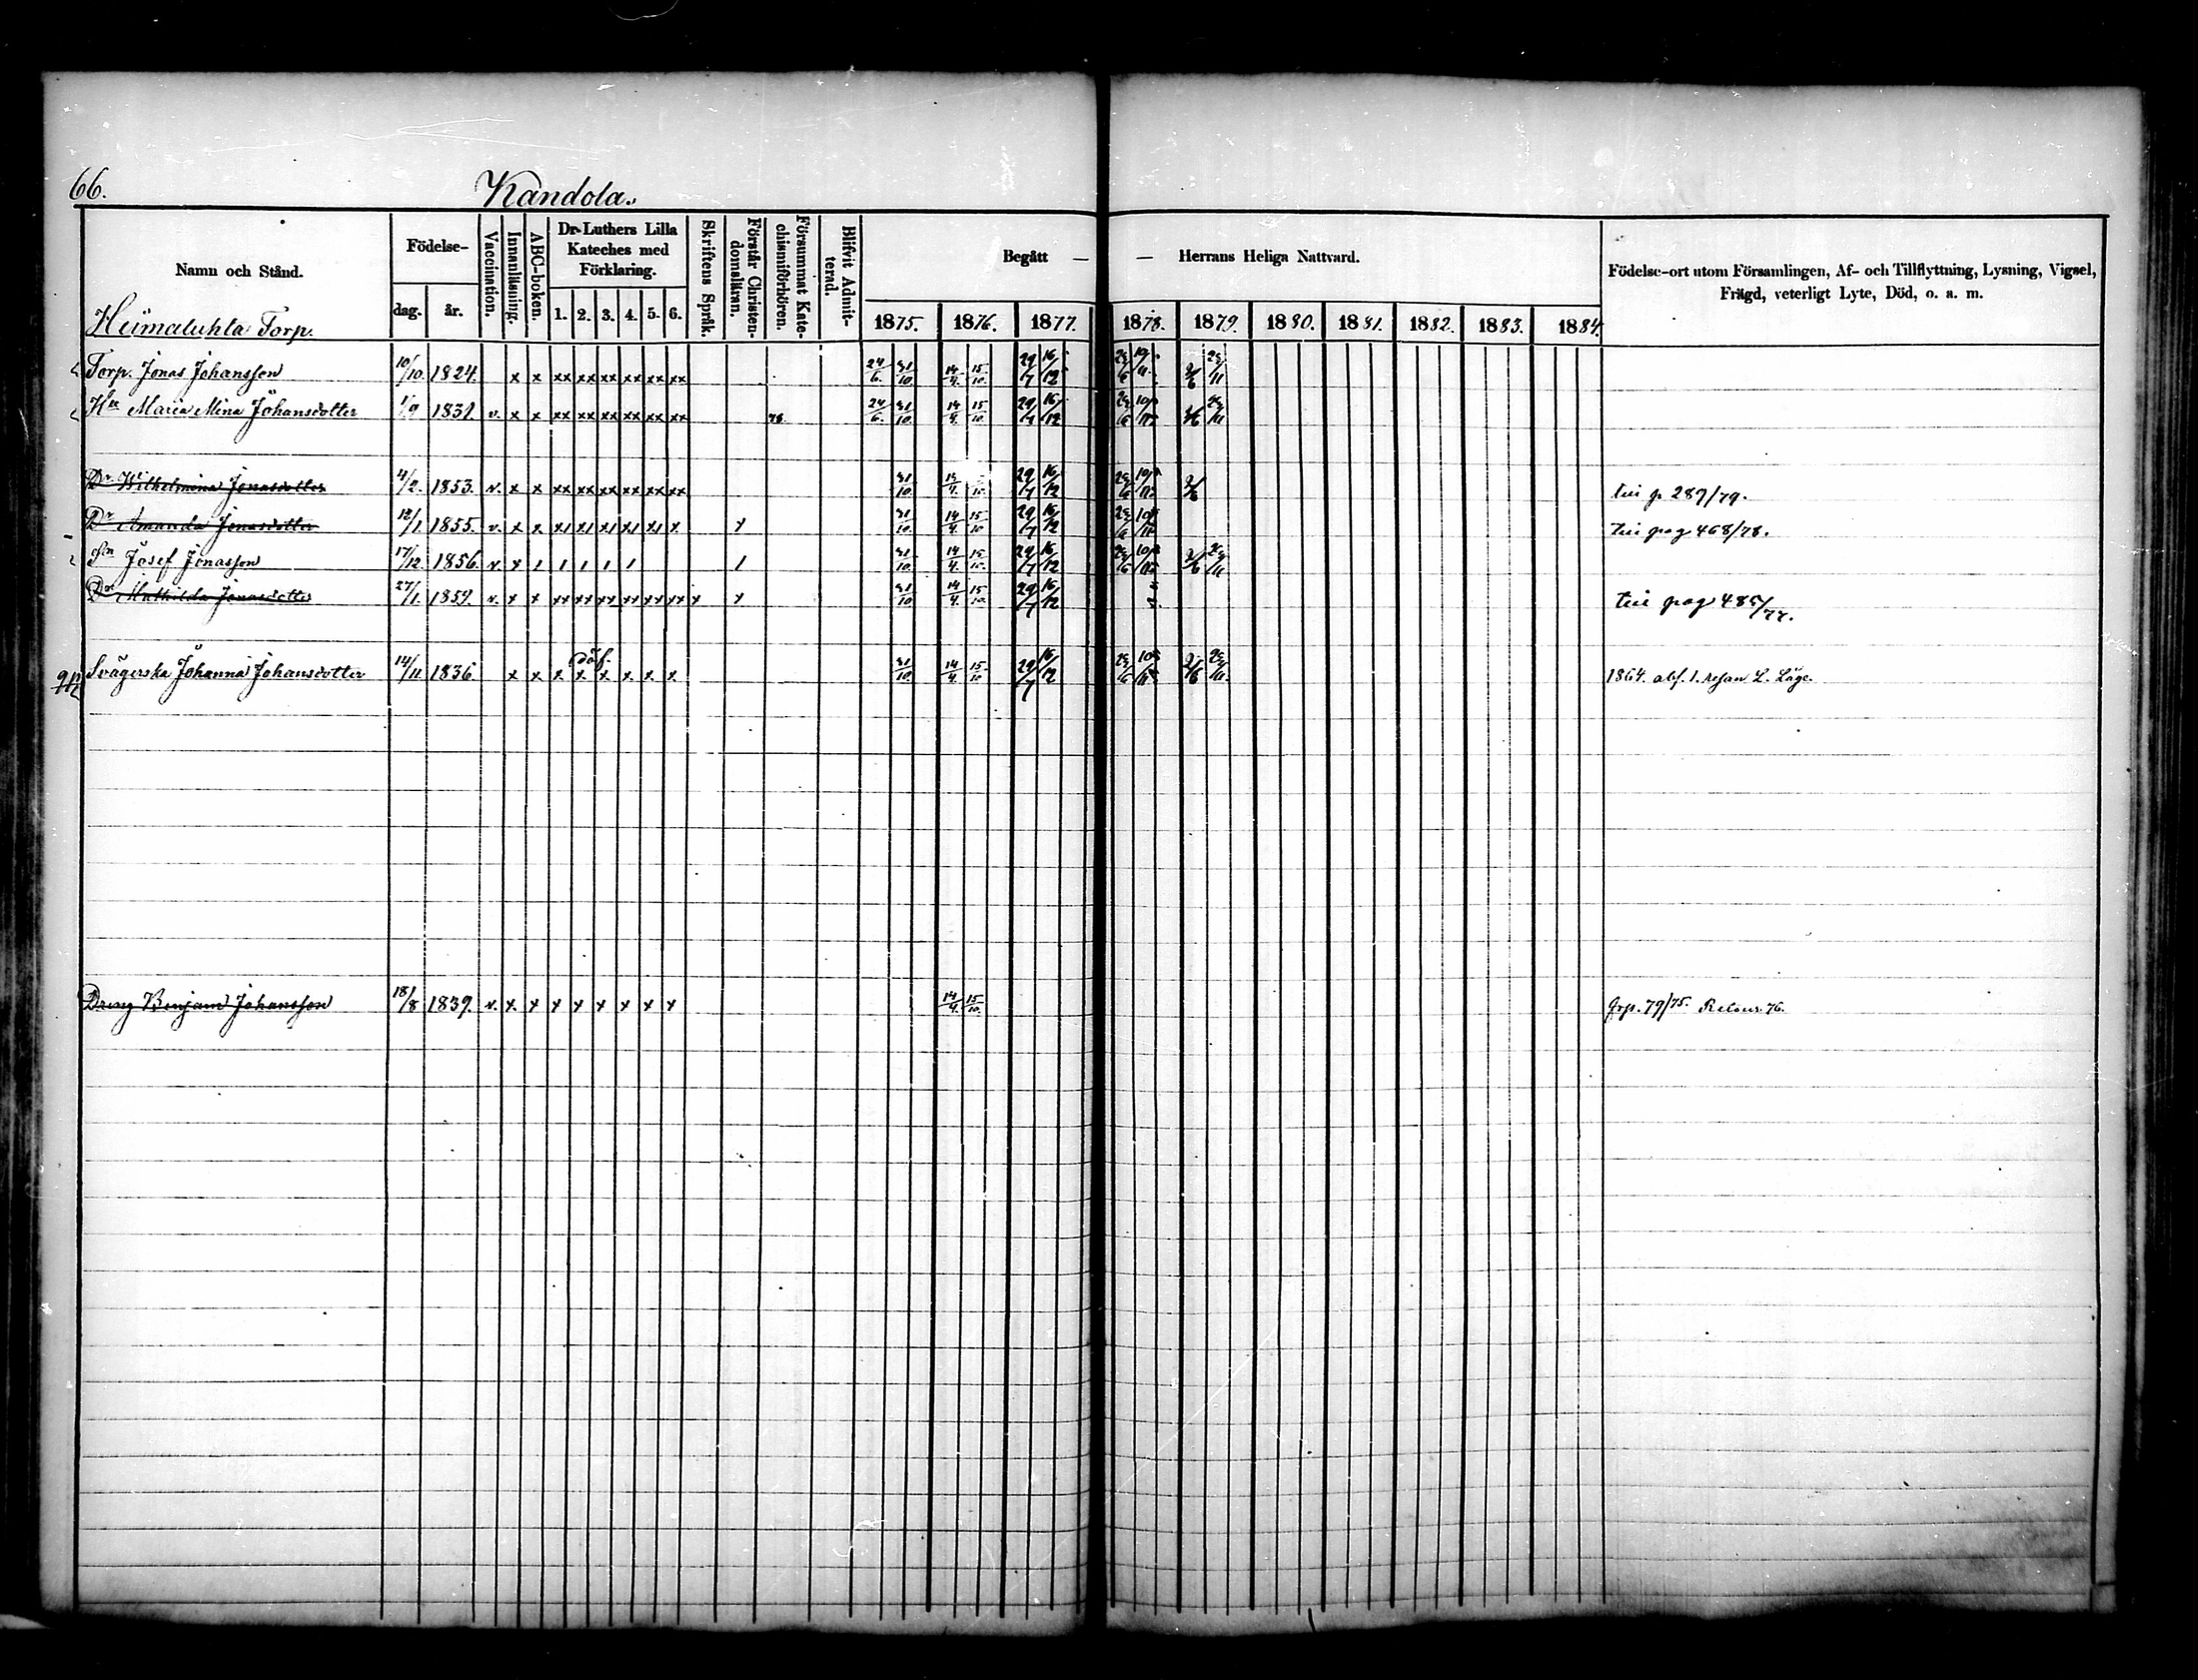 66.
Kandola.
Namn och Stånd.
Födelse-
dag. år.
Vaccination.
Innanläsning.
ABC-boken.
Dr Luthers Lilla Kateches med Förklaring.
1. 2. 3. 4. 5. 6.
Skriftens Språk.
Förstår Christen-domsläran.
Försummat Kate-chismiförhören.
Blifvit Admit-terad.
Begått — — Herrans Heliga Nattvard.
1875. 1876. 1877. 1878. 1879. 1880. 1881. 1882. 1883. 1884.
Födelse-ort utom Församlingen, Af- och Tillflyttning, Lysning, Vigsel,
Frägd, veterligt Lyte, Död, o. a. m.
Heimaluhta Torp.
Torp. Jonas Johansson 10/10. 1824. x x xx xx xx xx xx xx 24/6. 31/10. 14/4. 15/10. 29/7 16/12
Hu Maria Mina Johansdotter 1/9 1831. v. x x xx xx xx xx xx xx 78. 24/6. 31/10. 14/4. 15/10. 29/7 16/12
Dr Wilhelmina Jonasdotter 4/2. 1853. v. x x xx xx xx xx xx xx 31/10. 29/7 16/12 till p 289/79.
Dr Amanda Jonasdotter 12/1. 1855. v. x x x1 x1 x1 x1 x1 x x 31/10. 14/4. 15/10. 29/7 16/12 till pag 468/78.
Sn Josef Jonasson 17/12. 1856. v. x 1 1 1 1 1 1 31/10. 14/4. 15/10. 29/7 16/12
Dr Mathilda Jonasdotter 27/1. 1859. v. x x xx xx xx xx xx xx x x 31/10. 14/4. 15/10. 29/7 16/12 till pag 485/77.
döf.
Svägerska Johanna Johansdotter 14/11 1836 x x x x x x x x 31/10. 14/4. 15/10. 29/7 16/12 1864. abs. 1. resan L. Läge.
Dreng Benjam Johansson 18/8 1839. v. x. x x x x x x x 14/4. 15/10. frp. 79/75. Retour 76.